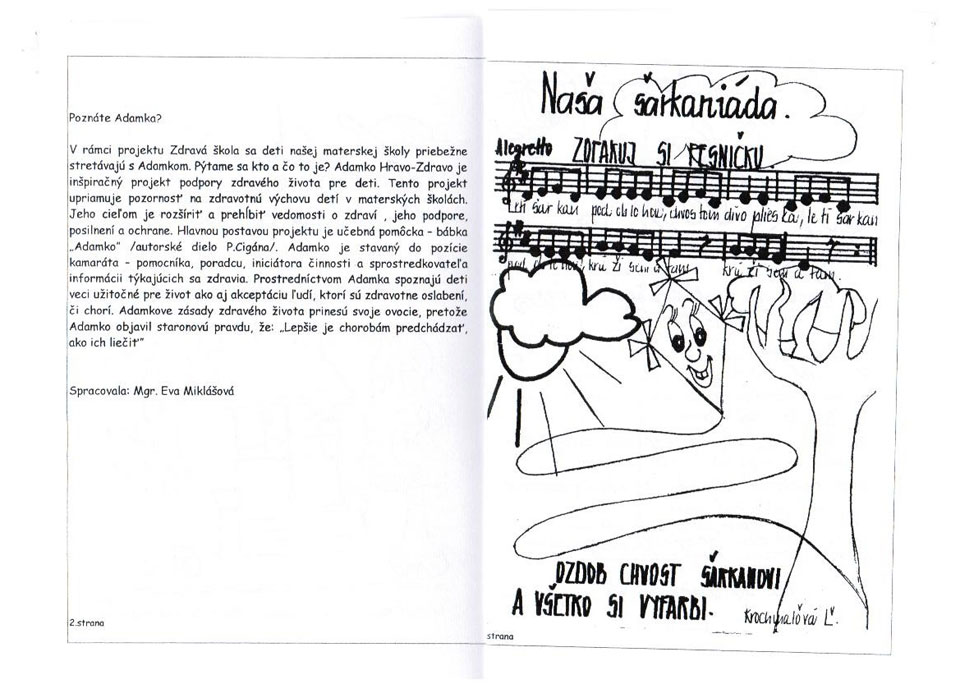 Poznáte Adamka?
V rámci projektu Zdravá škola sa deti našej materskej školy priebežne
stretávajú s Adamkom. Pýtame sa kto a čo to je? Adamko Hravo-Zdravo je
inšpiračný projekt podpory zdravého života pre deti. Tento projekt
upriamuje pozornosť na zdravotnú výchovu detí v materských školách.
Jeho cieľom je rozšíriť a prehĺbiť vedomosti o zdraví , jeho podpore,
posilnení a ochrane. Hlavnou postavou projektu je učebná pomôcka - bábka
„Adamko" /autorské dielo P.Cigána/. Adamko je stavaný do pozície
kamaráta - pomocníka, poradcu, iniciátora činnosti a sprostredkovateľa
informácii týkajúcich sa zdravia. Prostredníctvom Adamka spoznajú deti
veci užitočné pre život ako aj akceptáciu ľudí, ktorí sú zdravotne oslabení,
či chorí. Adamkove zásady zdravého života prinesú svoje ovocie, pretože
Adamko objavil staronovú pravdu, že: „Lepšie je chorobám predchádzať,
ako ich liečiť"
Spracovala: Mgr. Eva Miklášová
2.strana
Naša šarkaniáda.
Allegretto ZOPAKUJ SI PESNIČKU
Letí šar kan pod ob lo hou, chvos tom divo plies ka, le tí šar kan
pod ob lo hou, krú ži sem a tam krú ži sem a tam.
OZDOB CHVOST ŠARKANOVI
A VŠETKO SI VYFARBI.
Krochmaľová Ľ.
strana